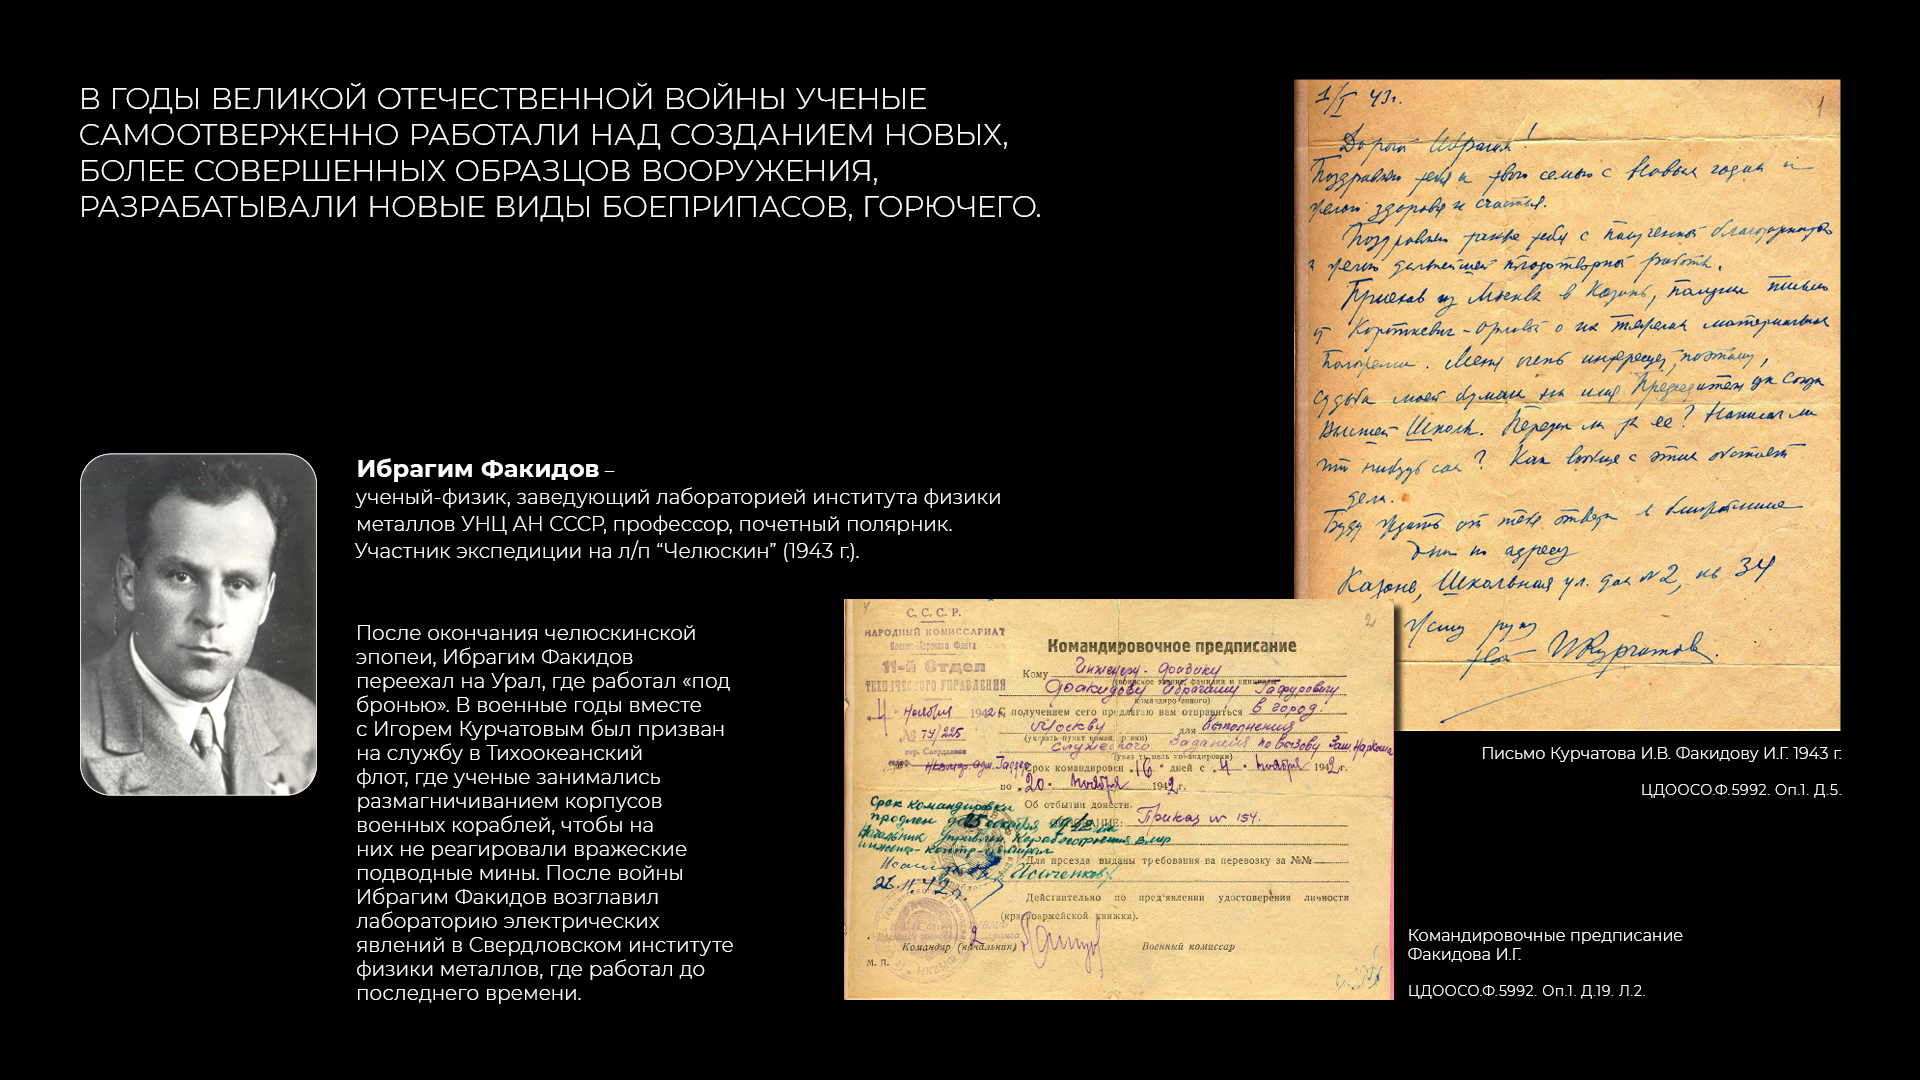 В ГОДЫ ВЕЛИКОЙ ОТЕЧЕСТВЕННОЙ ВОЙНЫ УЧЕНЫЕ
САМООТВЕРЖЕННО РАБОТАЛИ НАД СОЗДАНИЕМ НОВЫХ,
БОЛЕЕ СОВЕРШЕННЫХ ОБРАЗЦОВ ВООРУЖЕНИЯ,
РАЗРАБАТЫВАЛИ НОВЫЕ ВИДЫ БОЕПРИПАСОВ, ГОРЮЧЕГО.
Ибрагим Факидов –
ученый-физик, заведующий лабораторией института физики
металлов УНЦ АН СССР, профессор, почетный полярник.
Участник экспедиции на л/п “Челюскин” (1943 г.).
После окончания челюскинской
эпопеи, Ибрагим Факидов
переехал на Урал, где работал «под
бронью». В военные годы вместе
с Игорем Курчатовым был призван
на службу в Тихоокеанский
флот, где ученые занимались
размагничиванием корпусов
военных кораблей, чтобы на
них не реагировали вражеские
подводные мины. После войны
Ибрагим Факидов возглавил
лабораторию электрических
явлений в Свердловском институте
физики металлов, где работал до
последнего времени.
1/I 43г.
1
Дорогой Ибрагим!
Поздравляю тебя и твою семью с Новым годом и
желаю здоровья и счастья.
Поздравляю также тебя с полученной благодарностью
и желаю дальнейшей плодотворной работы.
Приехав из Москвы в Казань, получил письмо
от Короткевич-Орловой о их тяжелом материальном
положении. Меня очень интересует, поэтому,
судьба моей бумаги на имя Председателя цк Союза
Высшей Школы. Передал ли ты ее? Написал ли
что нибудь сам? Как вообще с этим обстоит
дело.
Буду ждать от тебя ответа в ближайшие
дни по адресу
Казань, Школьная ул. дом №2, кв 34
Жму руку
твой И Курчатов.
Письмо Курчатова И.В. Факидову И.Г. 1943 г.
ЦДООСО.Ф.5992. Оп.1. Д.5.
С. С. С. Р.
НАРОДНЫЙ КОМИССАРИАТ
Военно-Морского Флота
11-й Отдел
ТЕХНИЧЕСКОГО УПРАВЛЕНИЯ
4 ноября 1942 г.
№ ТУ/225
гор. Свердловск
2
Командировочное предписание
Кому Инженеру-физику
(воинское звание, фамилия и инициалы
Факидову Ибрагиму Гафуровичу
командированного)
С получением сего предлагаю вам отправиться в город.
Москву для выполнения
(указать пункт командировки)
служебного задания по вызову Зам Наркома
(указать цель командировки)
Срок командировки 16 дней с 4 ноября 1942 г.
по 20 ноября 1942 г.
Об отбытии донести.
ОСНОВАНИЕ: Приказ № 154.
Срок командировки
продлен до 25
Начальник Управления Кораблестроения ВМФ
инженер-контр-адмирал
Исаченков
26.11.42г.
Для проезда выданы требования на перевозку за №№
Действительно по предъявлении удостоверения личности
(красноармейской книжки).
Командир (начальник)
Военный комиссар
М. П.
Командировочные предписание
Факидова И.Г.
ЦДООСО.Ф.5992. Оп.1. Д.19. Л.2.